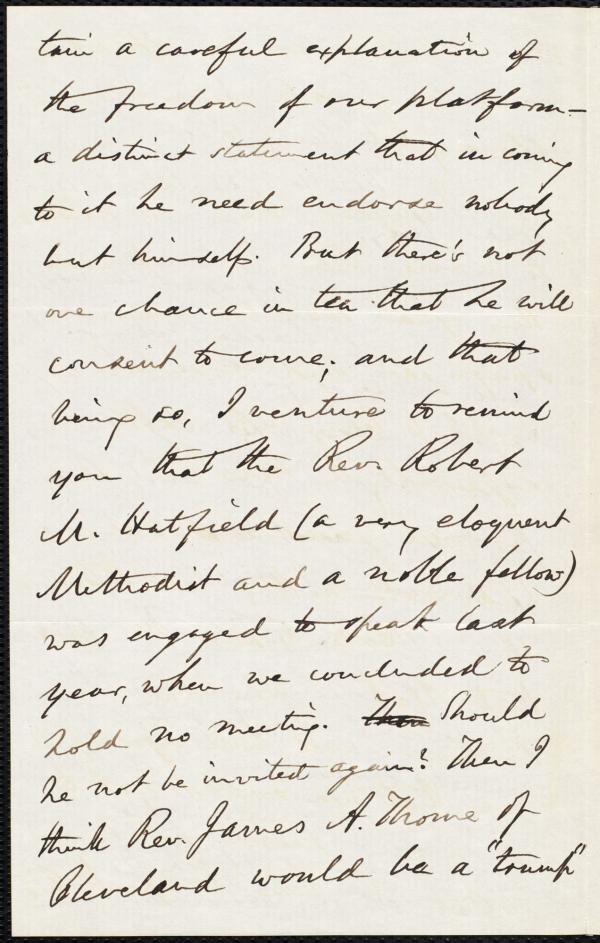 tain a careful explanation of
the freedom of our platform—
a distinct statement that in coming
to it he need endorse nobody
but himself. But there's not
one chance in ten that he will
consent to come; and that
being so, I venture to remind
you that the Rev. Robert
M. Hatfield (a very eloquent
Methodist and a noble fellow)
was engaged to speak last
year, when we concluded to
hold no meeting. Then Should
he not be invited again? Then I
think Rev. James A. Thome of
Cleveland would be a "trump"